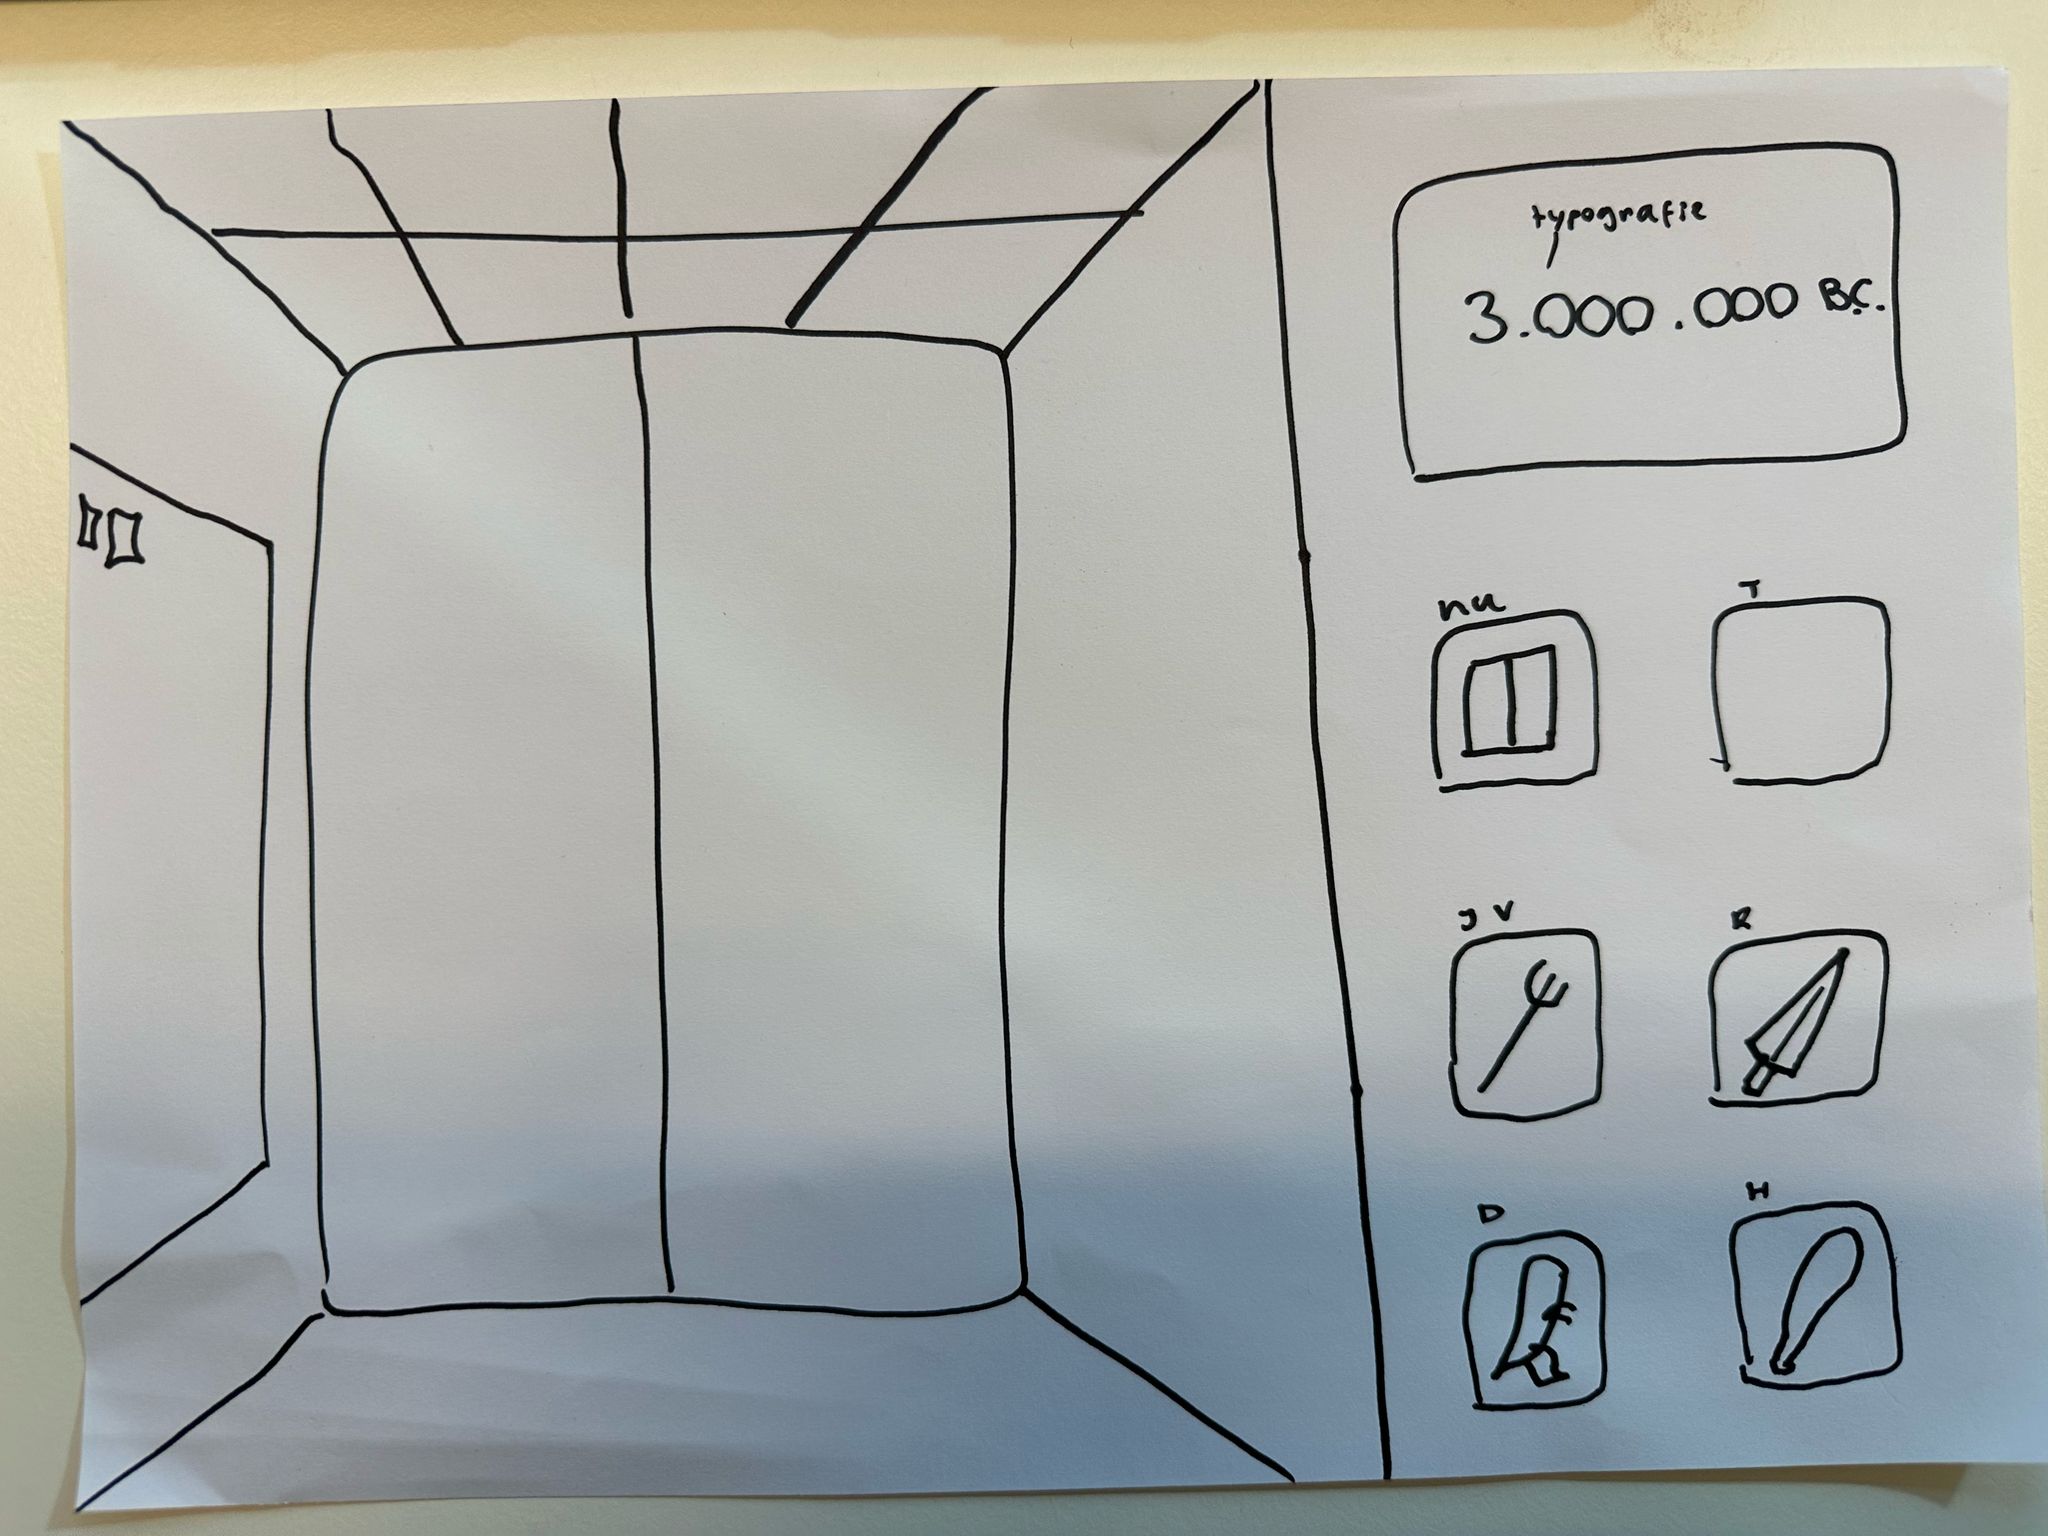 typografie
3.000.000 B.C.
nu
T
J V
R
D
H